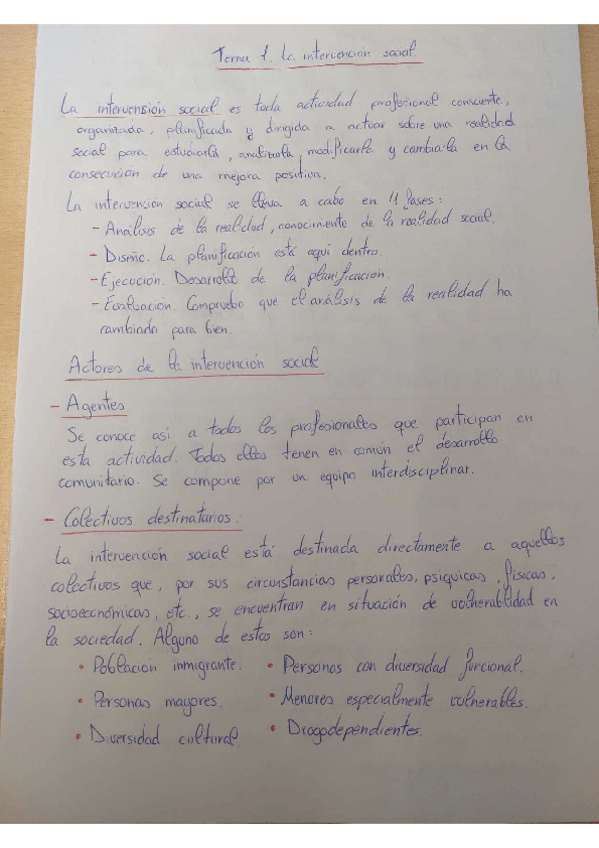 Tema 1. La intervención social.
La intervensión social es toda actividad profesional consciente,
organizada, planificada y dirigida a actuar sobre una realidad
social para estudiarla, analizarla, modificarla y cambiarla en la
consecución de una mejora positiva.
La intervención social se lleva a cabo en 4 fases:
- Análisis de la realidad, conocimiento de la realidad social.
- Diseño. La planificación está aquí dentro.
- Ejecución. Desarrollo de la planificación.
- Evaluación. Compruebo que el análisis de la realidad ha
cambiado para bien.
Actores de la intervención social
- Agentes.
Se conoce así a todos los profesionales que participan en
esta actividad. Todos ellos tienen en común el desarrollo
comunitario. Se compone por un equipo interdisciplinar.
- Colectivos destinatarios:
La intervención social está destinada directamente a aquellos
colectivos que, por sus circunstancias personales, psíquicas, físicas,
socioeconómicas, etc., se encuentran en situación de vulnerabilidad en
la sociedad. Alguno de estos son:
• Población inmigrante. • Personas con diversidad funcional.
• Personas mayores. • Menores especialmente vulnerables.
• Diversidad cultural • Drogodependientes.